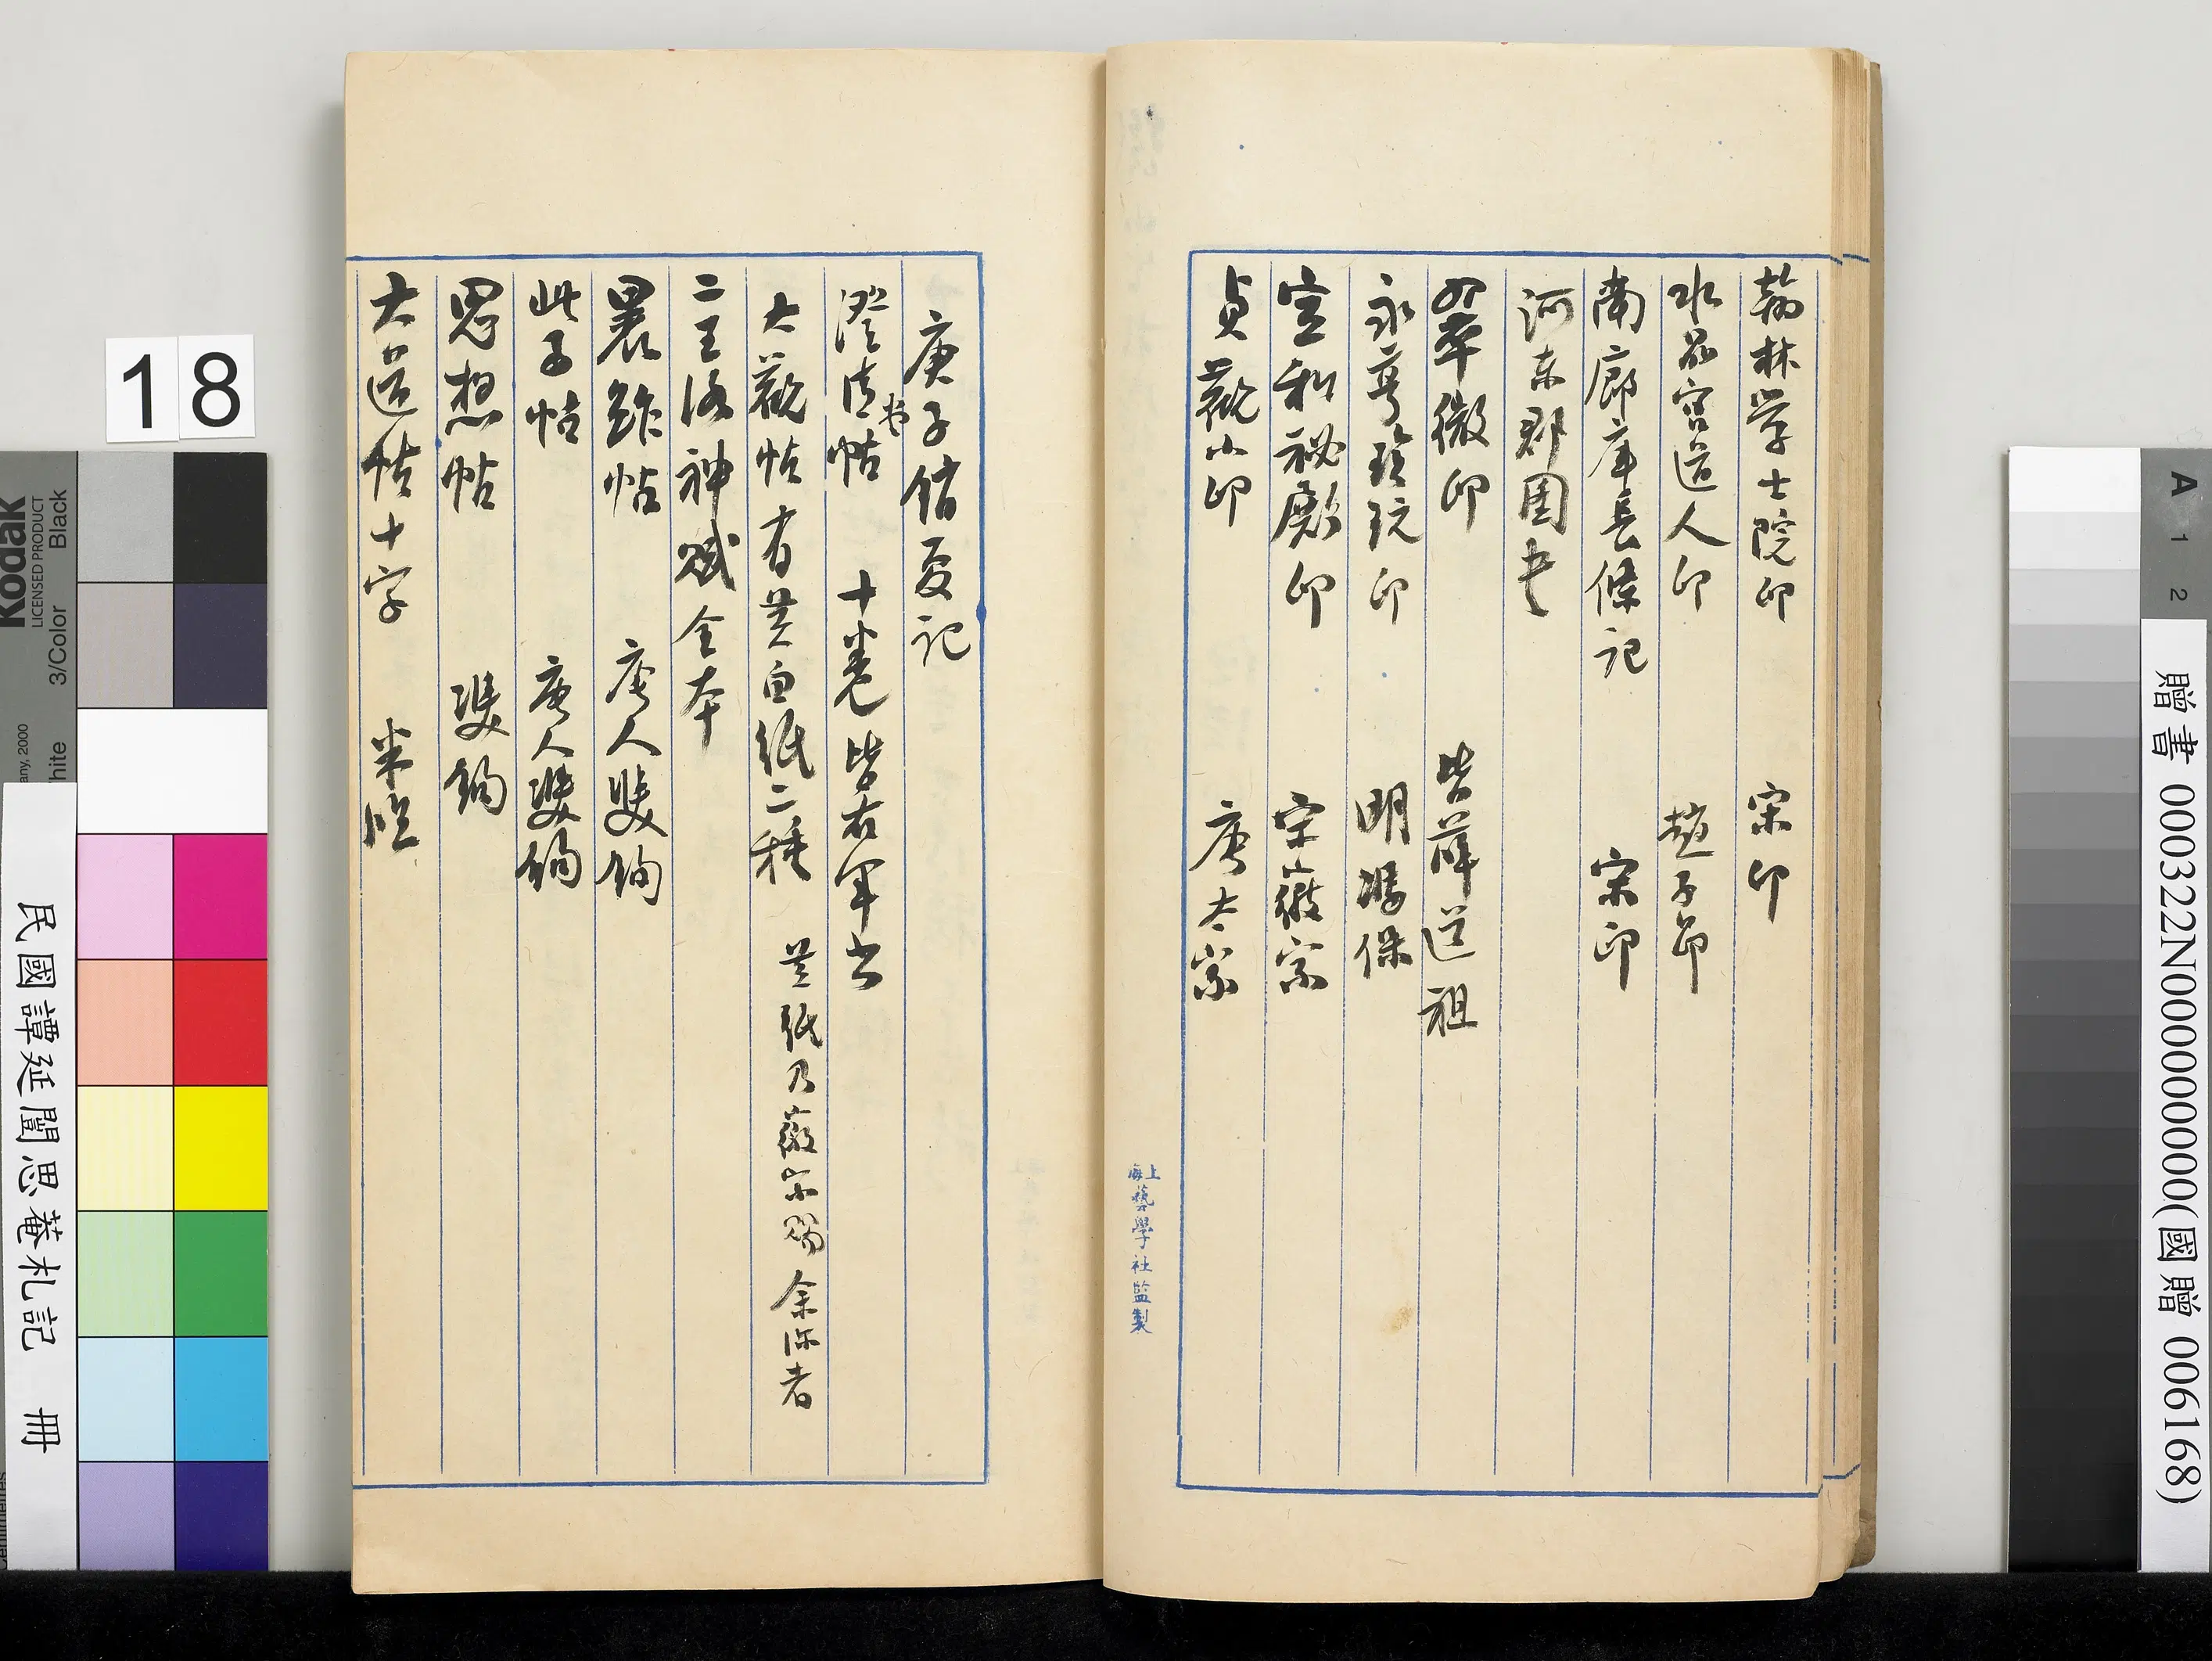 翰林学士院印 宋印
水晶宫道人印 趙子印
南廊庫長條記 宋印
河东郡圖书
翠微印 皆薛道祖
永寶珍玩印 明馮保
宣和秘殿印 宋徽宗
貞觀小印 唐太宗
上海藝學社監製
庚子銷夏記
澄清堂帖 十卷皆右军书
大觀帖有黄白紙二種 黄紙乃徽宗賜余深者
二王洛神賦全本
裹鮓帖 唐人雙鉤
此子帖 唐人雙鉤
思想帖 雙鉤
大道帖十字 米臨
18
Kodak
LICENSED PRODUCT
3/Color Black
民國譚延闓思菴札記 冊
A 1 2
贈書 000322N000000000(國贈 006168)